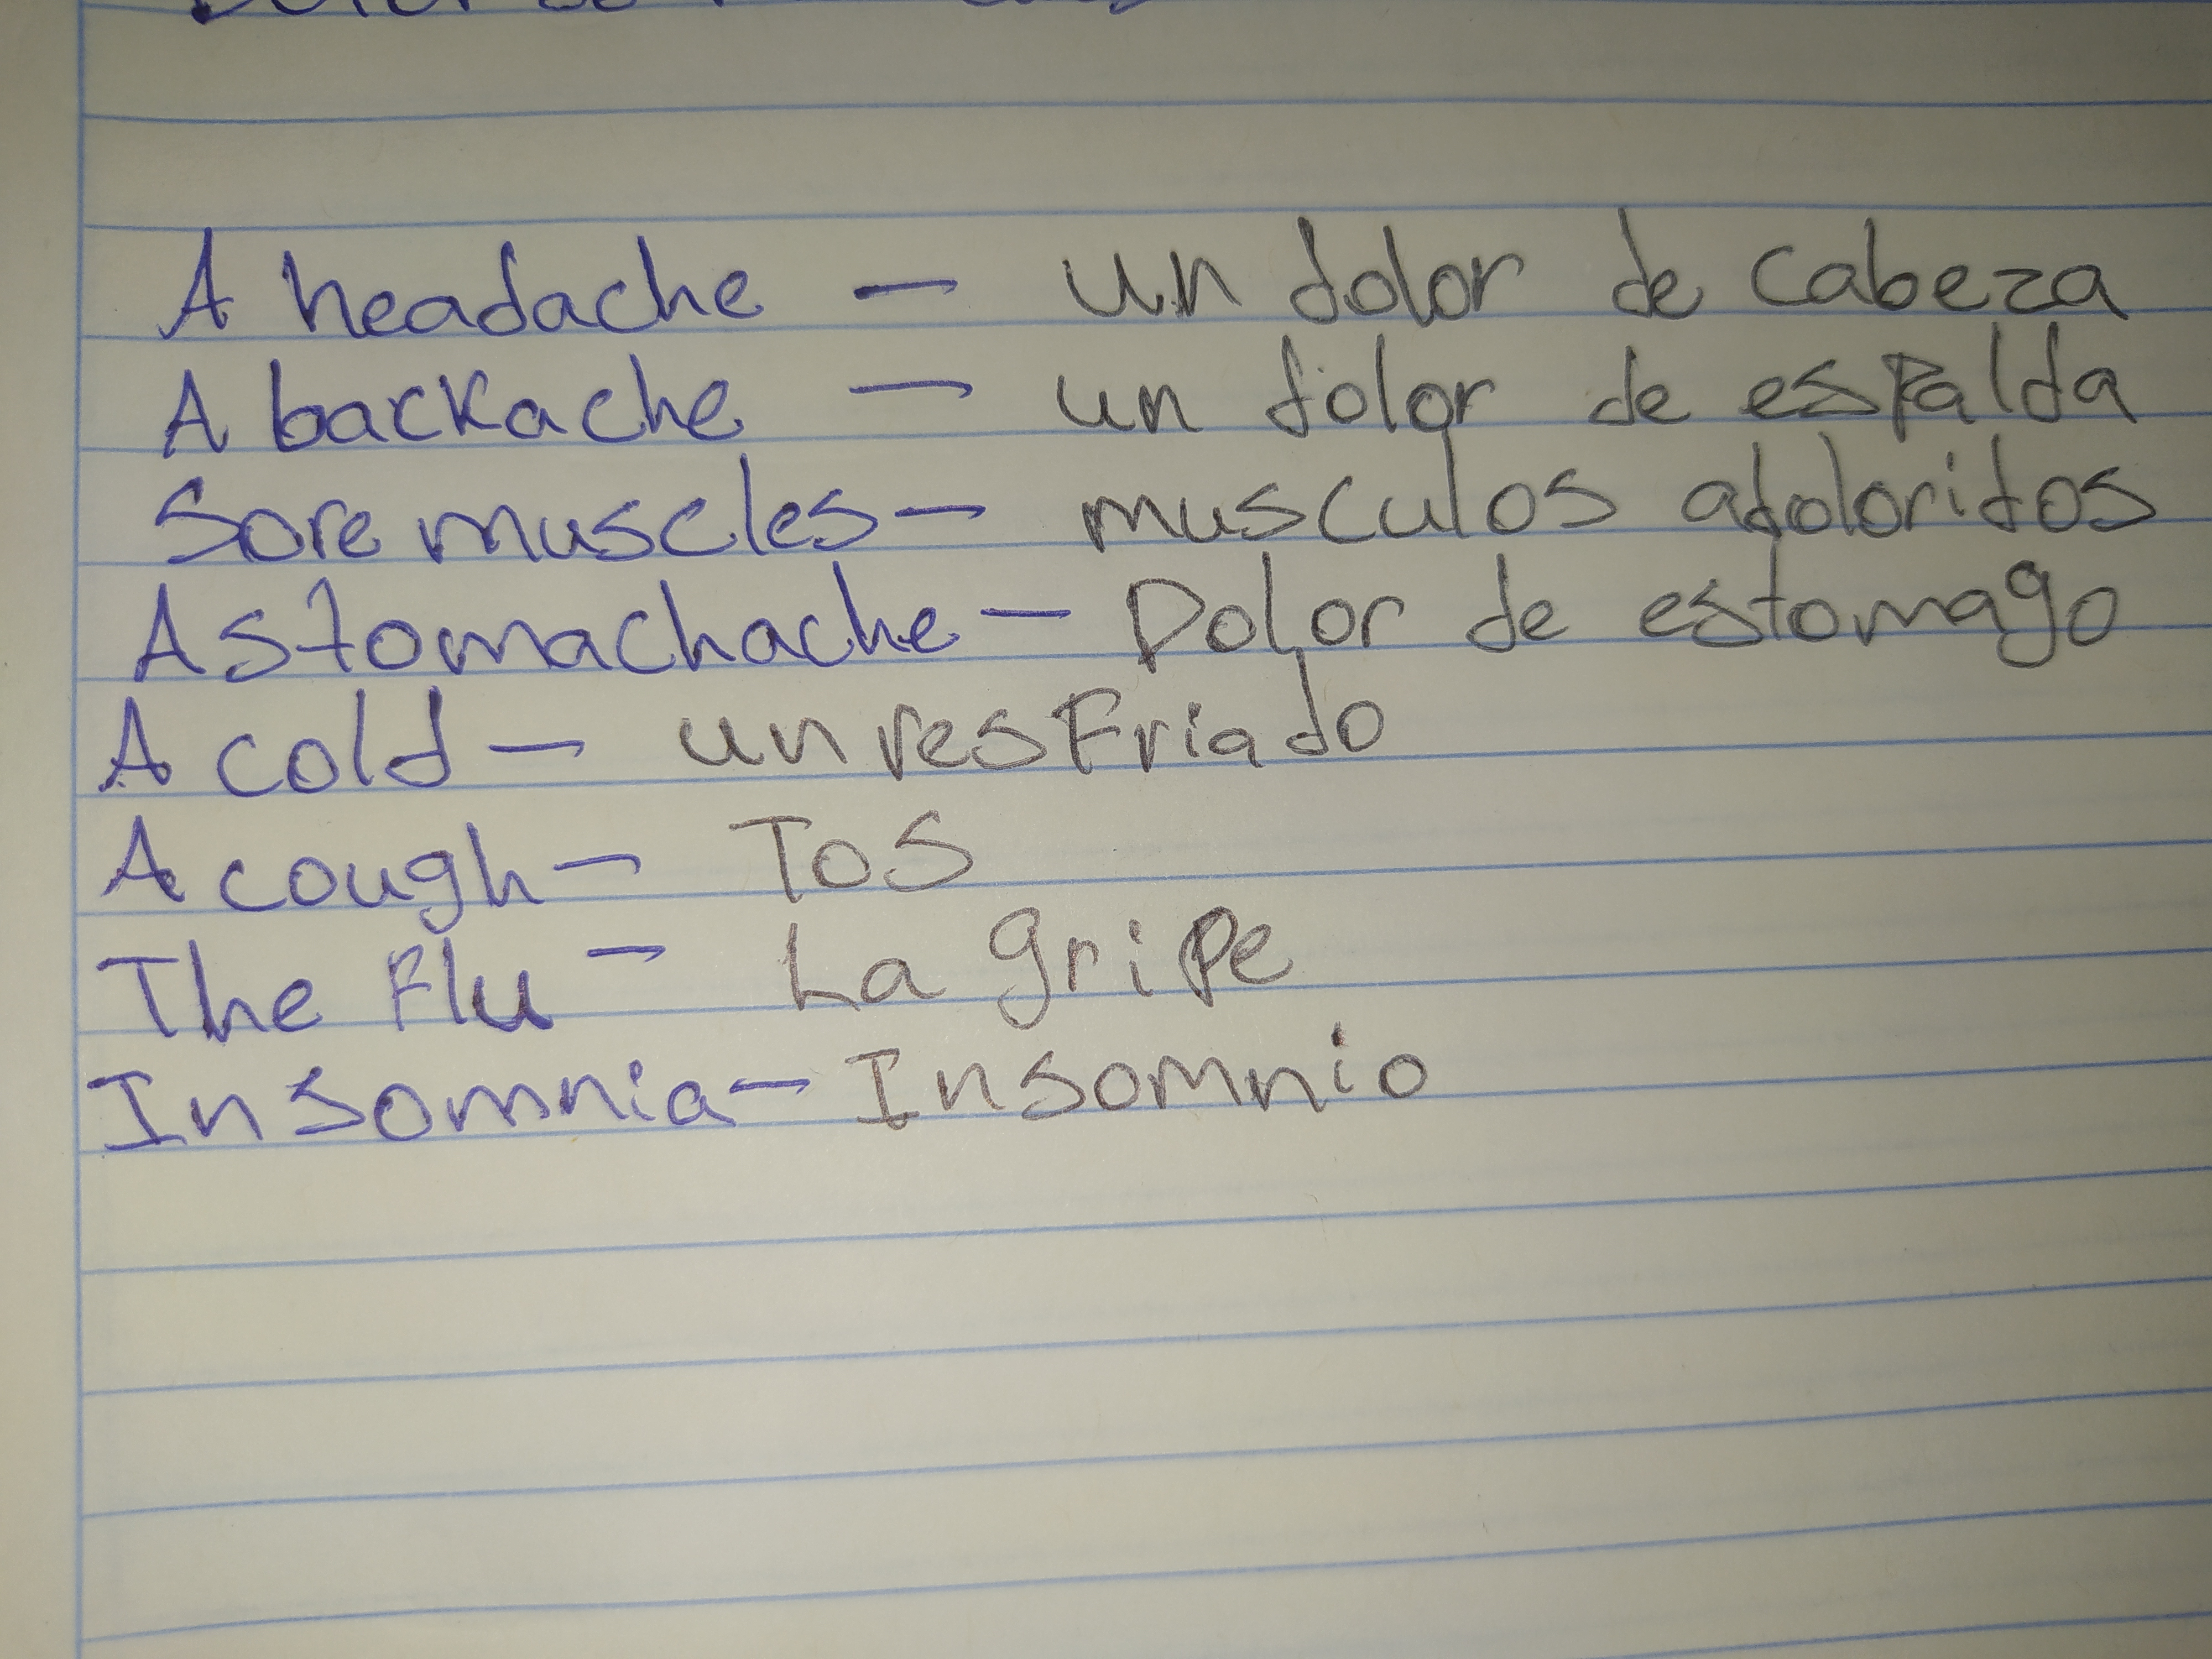 A headache — un dolor de cabeza
A backache — un dolor de espalda
Sore muscles — musculos adoloridos
A stomachache — Dolor de estomago
A cold — un resfriado
A cough — Tos
The Flu — La gripe
Insomnia — Insomnio